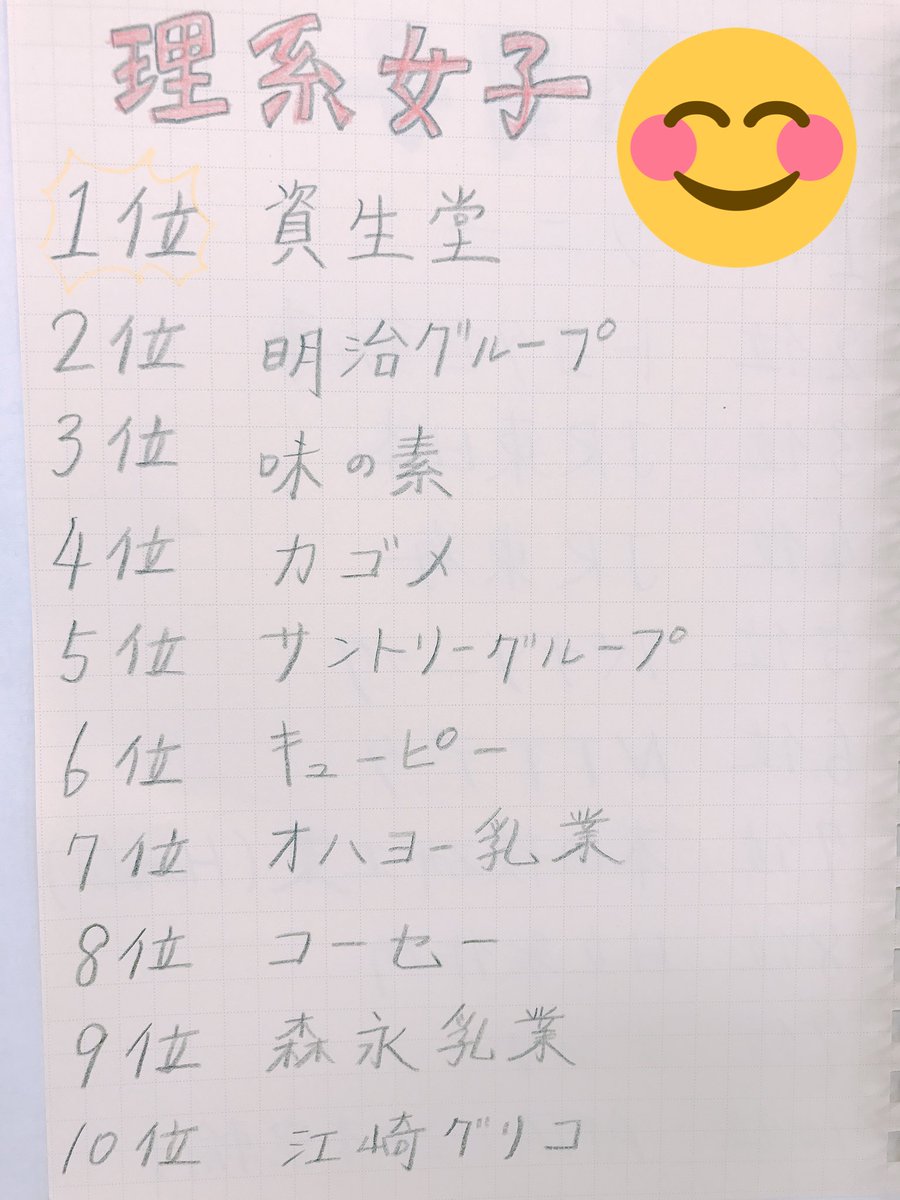 理系女子
1位 資生堂
2位 明治グループ
3位 味の素
4位 カゴメ
5位 サントリーグループ
6位 キューピー
7位 オハヨー乳業
8位 コーセー
9位 森永乳業
10位 江崎グリコ